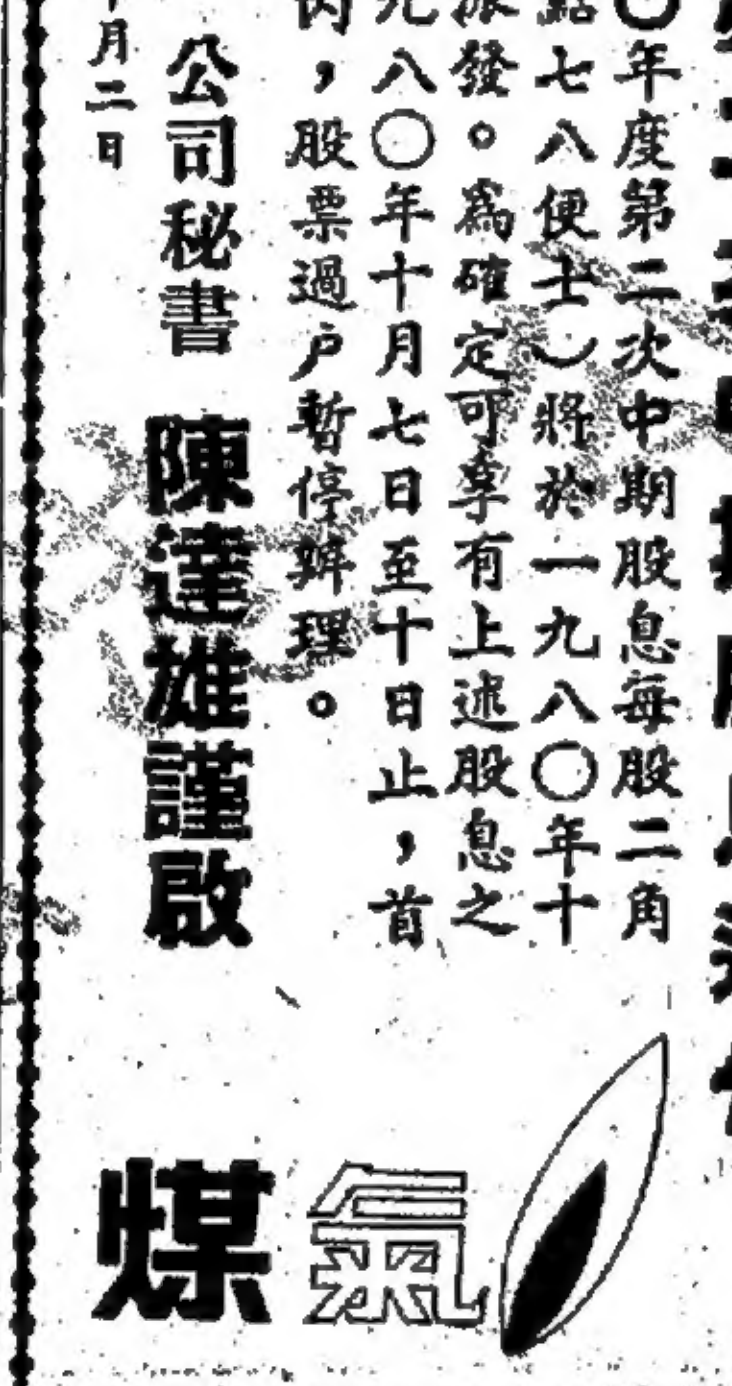 〇年度第二次中期股息每股二角
點七八便士）將於一九八〇年十
派發。為確定可享有上述股息之
九八〇年十月七日至十日止，首
內，股票過户暫停辦理。
公司秘書 陳達雄謹啟
月二日
煤氣